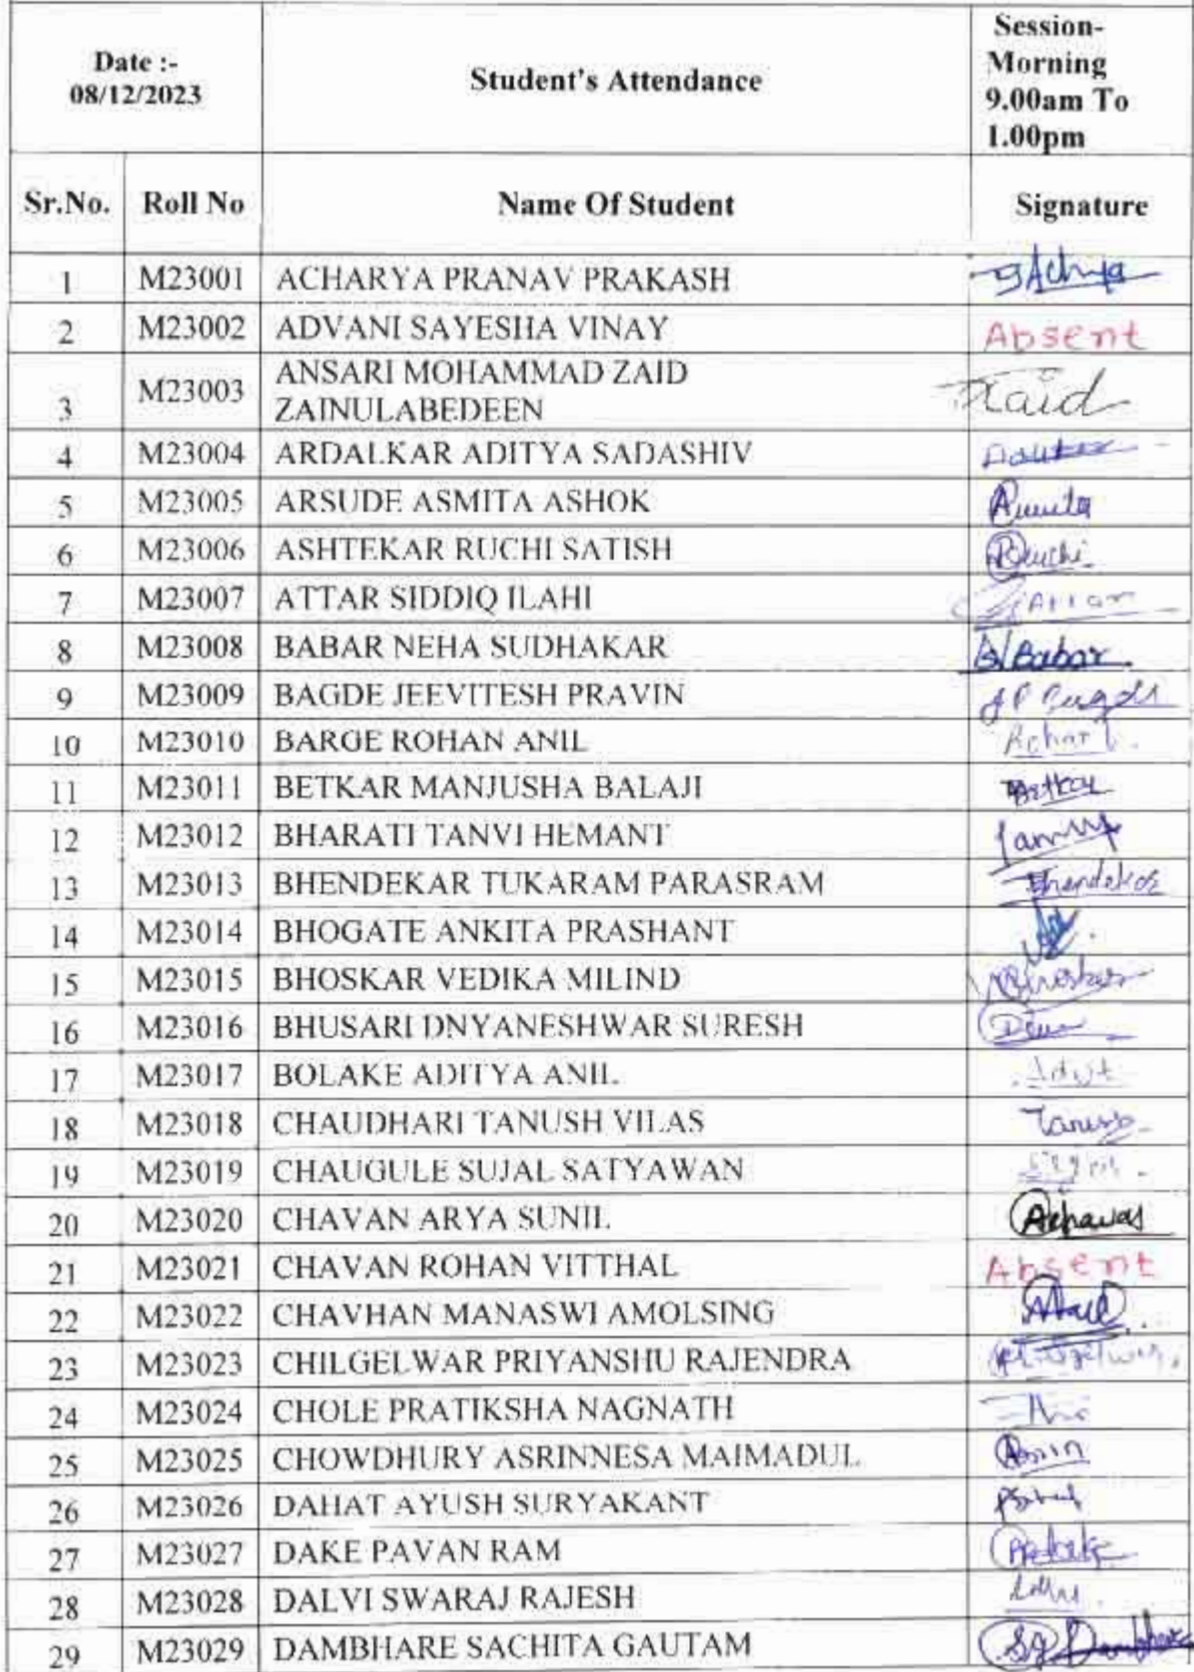 Date :-
08/12/2023
Student's Attendance
Session-
Morning
9.00am To
1.00pm
Sr.No. Roll No Name Of Student Signature
1 M23001 ACHARYA PRANAV PRAKASH
2 M23002 ADVANI SAYESHA VINAY Absent
3 M23003 ANSARI MOHAMMAD ZAID
ZAINULABEDEEN Zaid
4 M23004 ARDALKAR ADITYA SADASHIV
5 M23005 ARSUDE ASMITA ASHOK
6 M23006 ASHTEKAR RUCHI SATISH Ruchi
7 M23007 ATTAR SIDDIQ ILAHI Attar
8 M23008 BABAR NEHA SUDHAKAR Babar
9 M23009 BAGDE JEEVITESH PRAVIN
10 M23010 BARGE ROHAN ANIL
11 M23011 BETKAR MANJUSHA BALAJI Betkar
12 M23012 BHARATI TANVI HEMANT
13 M23013 BHENDEKAR TUKARAM PARASRAM Bhendekar
14 M23014 BHOGATE ANKITA PRASHANT
15 M23015 BHOSKAR VEDIKA MILIND
16 M23016 BHUSARI DNYANESHWAR SURESH
17 M23017 BOLAKE ADITYA ANIL
18 M23018 CHAUDHARI TANUSH VILAS Tanush
19 M23019 CHAUGULE SUJAL SATYAWAN
20 M23020 CHAVAN ARYA SUNIL
21 M23021 CHAVAN ROHAN VITTHAL Absent
22 M23022 CHAVHAN MANASWI AMOLSING
23 M23023 CHILGELWAR PRIYANSHU RAJENDRA
24 M23024 CHOLE PRATIKSHA NAGNATH
25 M23025 CHOWDHURY ASRINNESA MAIMADUL
26 M23026 DAHAT AYUSH SURYAKANT
27 M23027 DAKE PAVAN RAM
28 M23028 DALVI SWARAJ RAJESH
29 M23029 DAMBHARE SACHITA GAUTAM